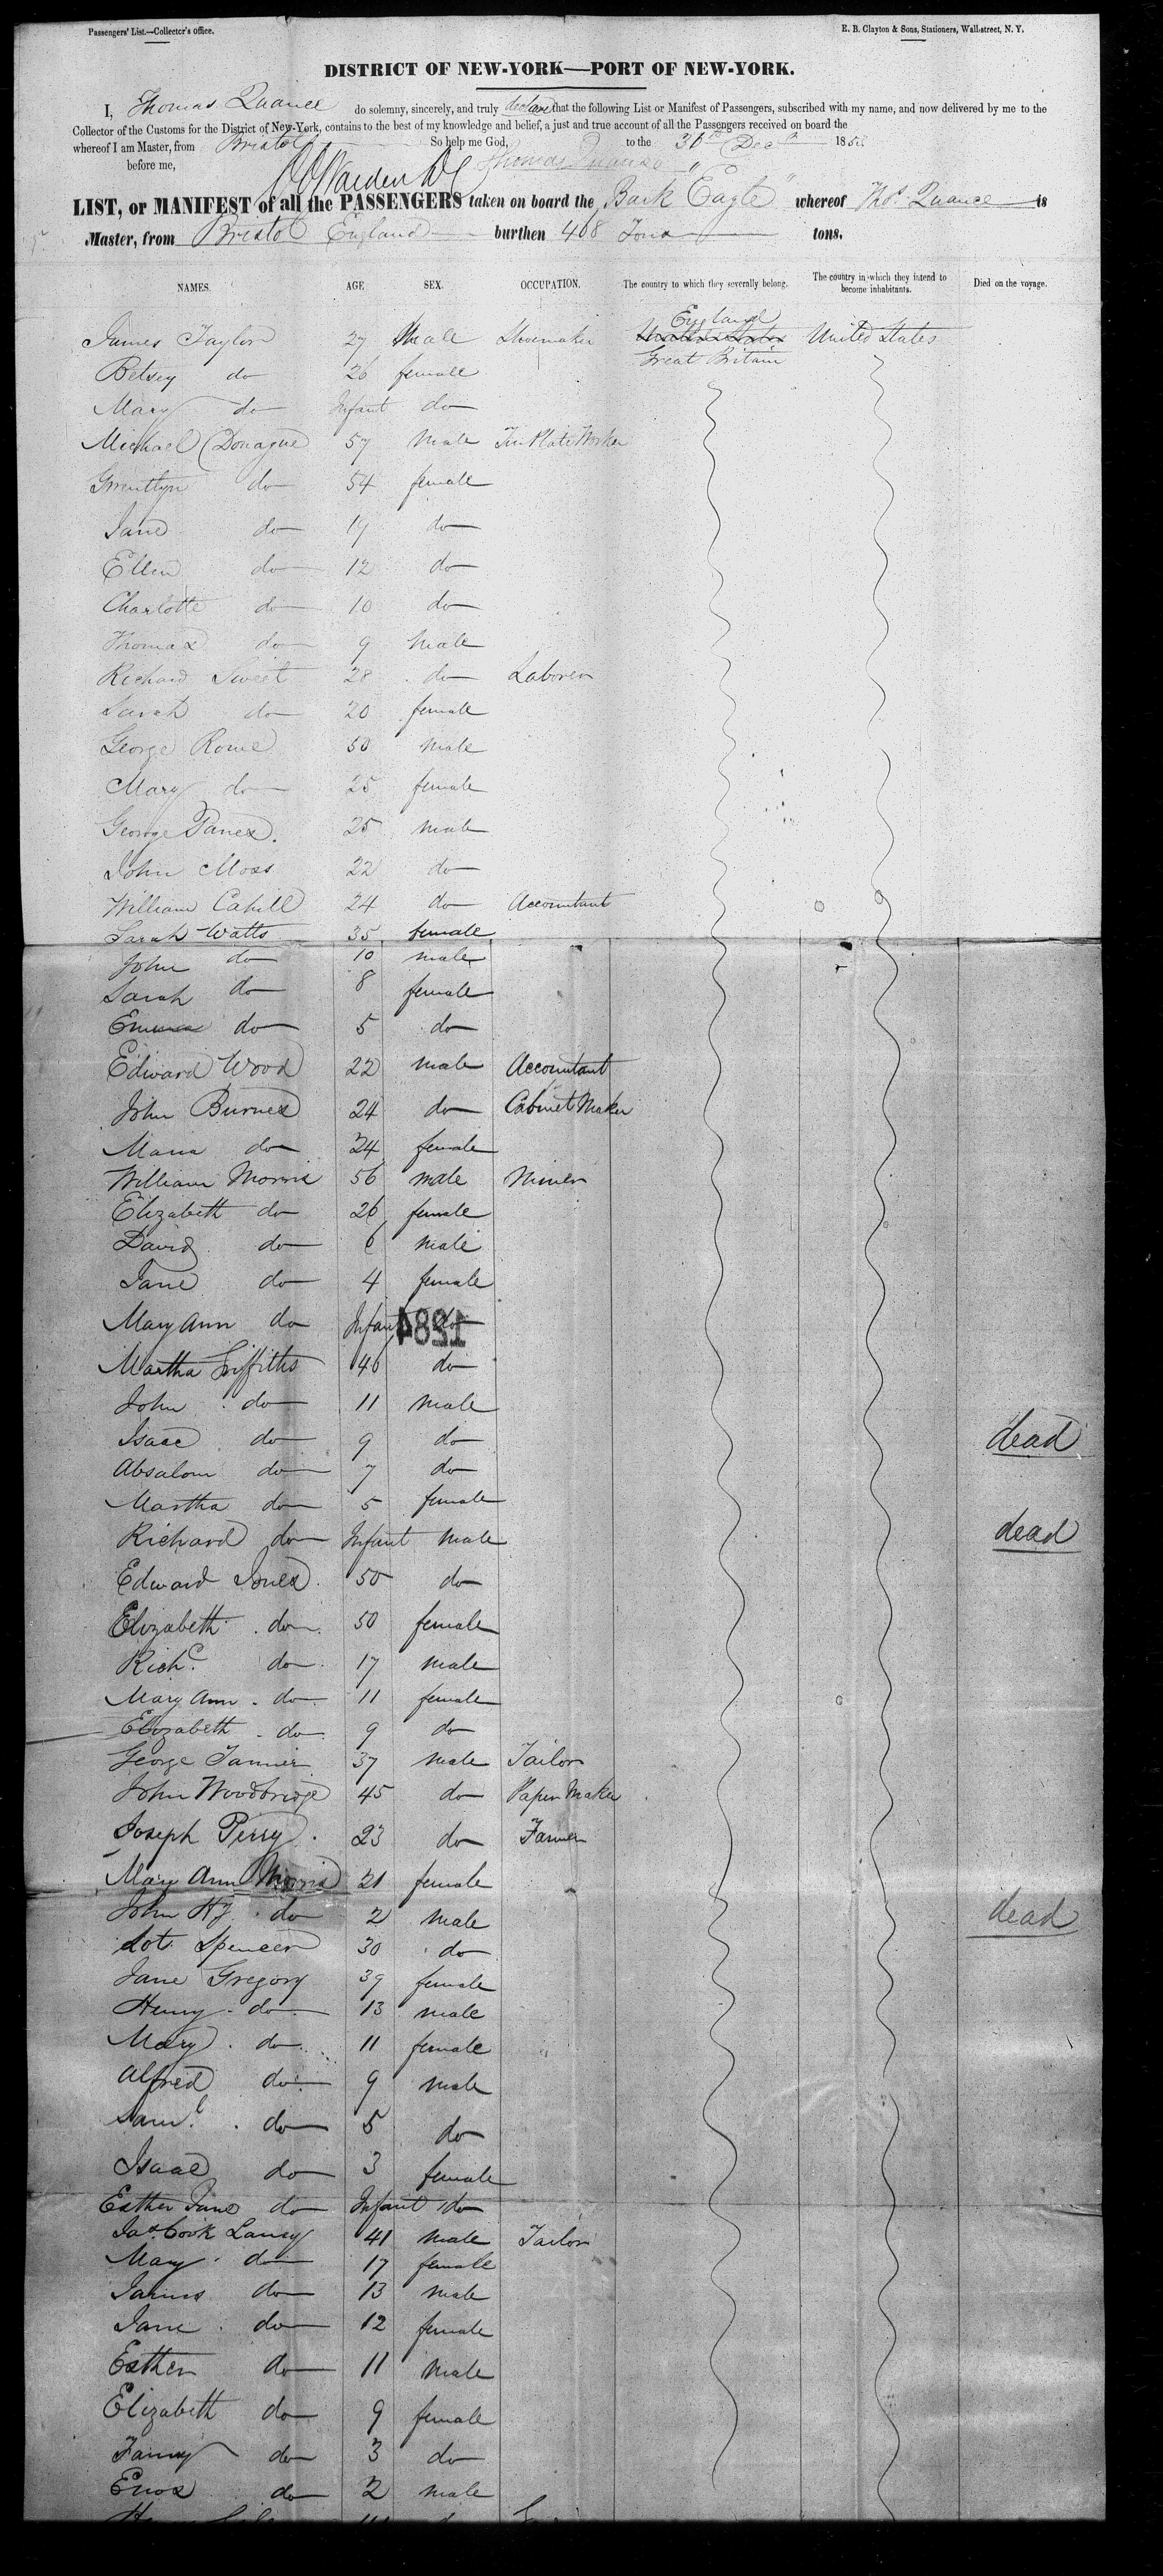 Passengers' List.—Collector's Office.
E. B. Clayton & Sons, Stationers, Wall-street, N. Y.
DISTRICT OF NEW-YORK—PORT OF NEW-YORK.
I, Thomas Quance do solemny, sincerely, and truly declare that the following List or Manifest of Passengers, subscribed with my name, and now delivered by me to the
Collector of the Customs for the District of New-York, contains to the best of my knowledge and belief, a just and true account of all the Passengers received on board the
whereof I am Master, from Bristol So help me God, to the 30th Decr 185
before me, Thomas Quance
LIST, or MANIFEST of all the PASSENGERS taken on board the Bark Eagle whereof Thos. Quance is
Master, from Bristol England burthen 408 Tons tons.
NAMES. AGE SEX. OCCUPATION. The country to which they severally belong. The country in which they intend to become inhabitants. Died on the voyage.
England
James Taylor 27 Male Shoemaker United States United States
Great Britain
Betsey do 26 female
Mary do Infant do
Michael Donague 57 Male Tin Plate Worker
Gwentlyn do 54 female
Jane do 19 do
Ellen do 12 do
Charlotte do 10 do
Thomas do 9 Male
Richard Sweet 28 do Laborer
Sarah do 20 female
George Rowe 50 Male
Mary do 25 female
George 25 male
John Moss 22 do
William Cahill 24 do Accountant
Sarah Watts 35 female
John do 10 male
Sarah do 8 female
Emma do 5 do
Edward Wood 22 male Accountant
John Burnes 24 do Cabinet Maker
Maria do 24 female
William Morris 56 male Miner
Elizabeth do 26 female
David do 6 male
Jane do 4 female
Mary Ann do Infant do
1284
Martha Griffiths 46 do
John do 11 Male
Isaac do 9 do dead
Absalom do 7 do
Martha do 5 female
Richard do Infant Male dead
Edward Jones 50 do
Elizabeth do 50 female
Richd. do 17 male
Mary Ann do 11 female
Elizabeth do 9 do
George Tanner 37 Male Tailor
John Woodbridge 45 do Paper Maker
Joseph Perry 23 do Farmer
Mary Ann Morris 21 female
John Hy do 2 Male dead
Lot Spencer 30 do
Jane Gregory 39 female
Henry do 13 male
Mary do 11 female
Alfred do 9 male
Saml. do 5 do
Isaac do 3 female
Esther Jane do Infant do
Jas. Cook Laney 41 Male Tailor
Mary do 17 female
Jarius do 13 Male
Jane do 12 female
Esther do 11 Male
Elizabeth do 9 female
Fanny do 3 do
Enos do 2 Male